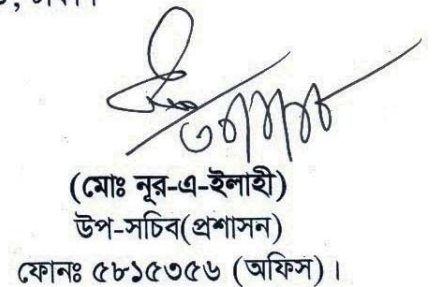 (মোঃ নূর-এ-ইলাহী)
উপ-সচিব(প্রশাসন)
ফোনঃ ৫৮১৫৩৫৬ (অফিস)।